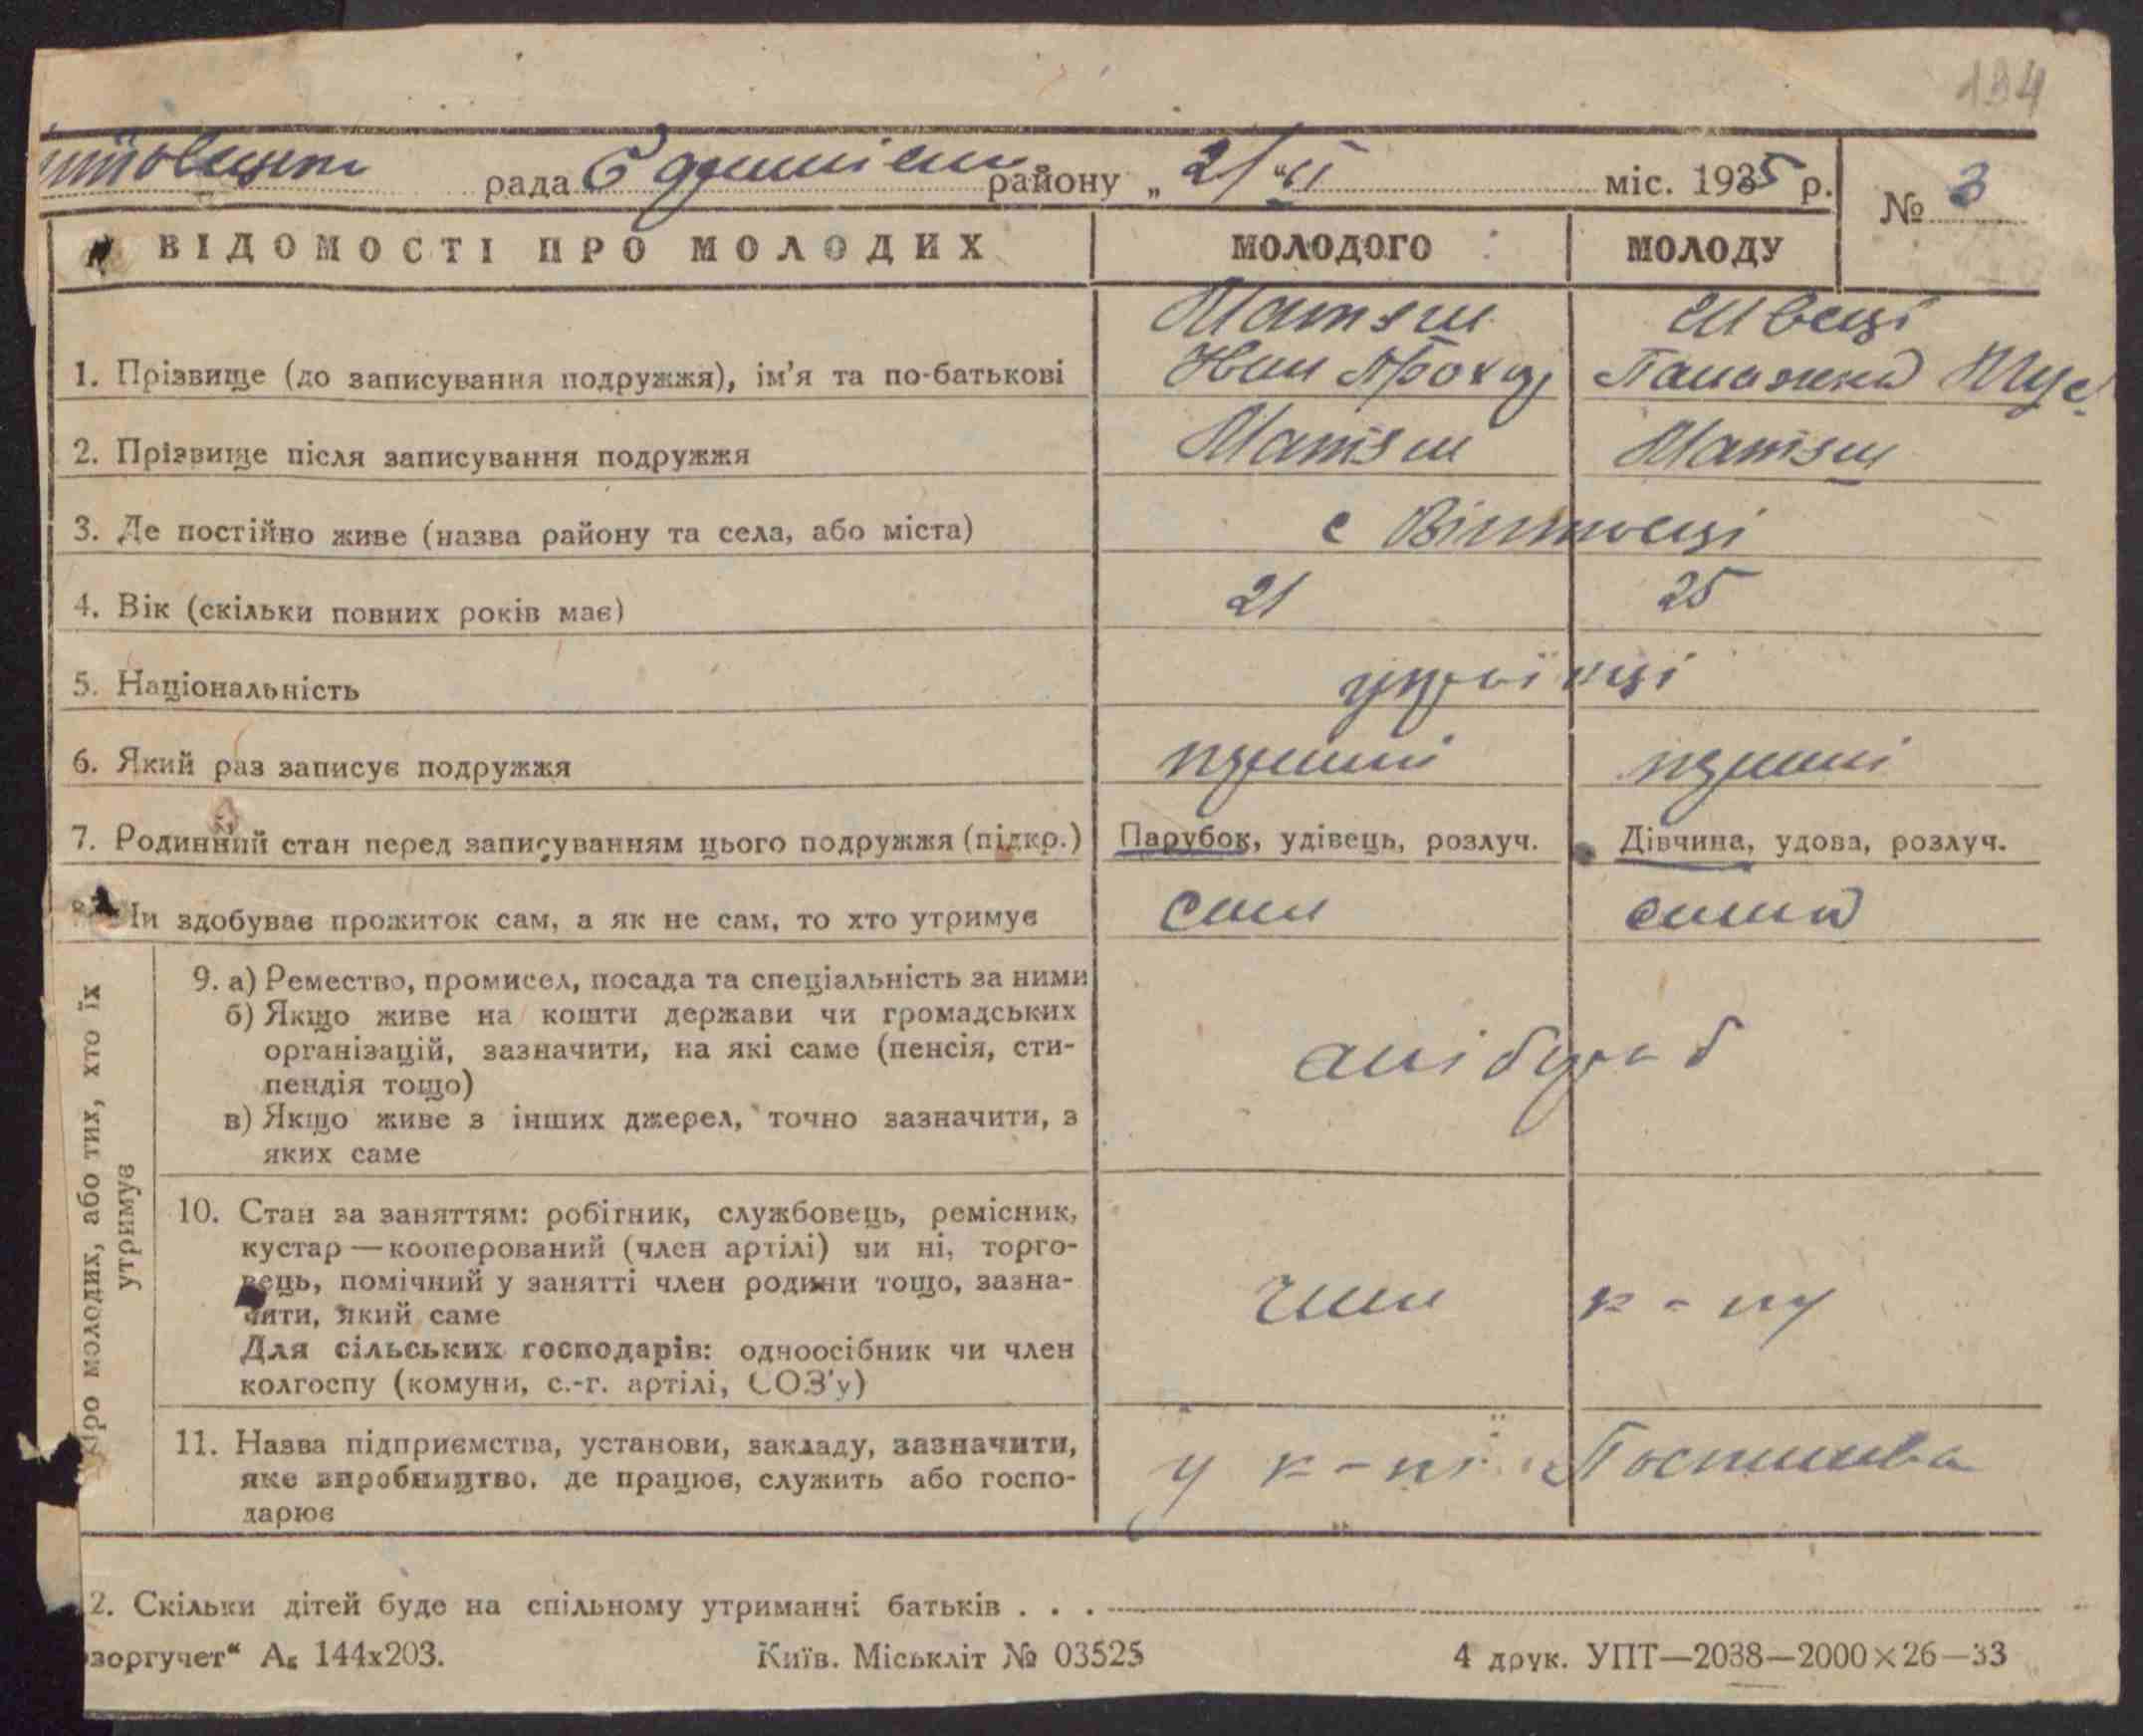 194
рада району „ 21 “ II міс. 1935 р.
№ 3
ВІДОМОСТІ ПРО МОЛОДИХ МОЛОДОГО МОЛОДУ
Матяш
1. Прізвище (до записування подружжя), ім'я та по-батькові
2. Прізвище після записування подружжя Матяш Матяш
3. Де постійно живе (назва району та села, або міста) с
4. Вік (скільки повних років має) 21 25
5. Національність українці
6. Який раз записує подружжя перший перший
7. Родинний стан перед записуванням цього подружжя (підкр.) Парубок, удівець, розлуч. Дівчина, удова, розлуч.
Чи здобуває прожиток сам, а як не сам, то хто утримує сам сама
Про молодих, або тих, хто їх
утримує
9. а) Ремество, промисел, посада та спеціальність за ними
б) Якщо живе на кошти держави чи громадських
організацій, зазначити, на які саме (пенсія, сти-
пендія тощо)
в) Якщо живе з інших джерел, точно зазначити, з
яких саме
10. Стан за заняттям: робітник, службовець, ремісник,
кустар — кооперований (член артілі) чи ні, торго-
вець, помічний у занятті член родини тощо, зазна-
чити, який саме
Для сільських господарів: одноосібник чи член
колгоспу (комуни, с.-г. артілі, СОЗ'у)
член к-пу
11. Назва підприємства, установи, закладу, зазначити,
яке виробництво, де працює, служить або госпо-
дарює
у к-пі Постишева
2. Скільки дітей буде на спільному утриманні батьків . . .
зоргучет“ А₅ 144х203. Київ. Міськліт № 03525 4 друк. УПТ—2038—2000×26—33